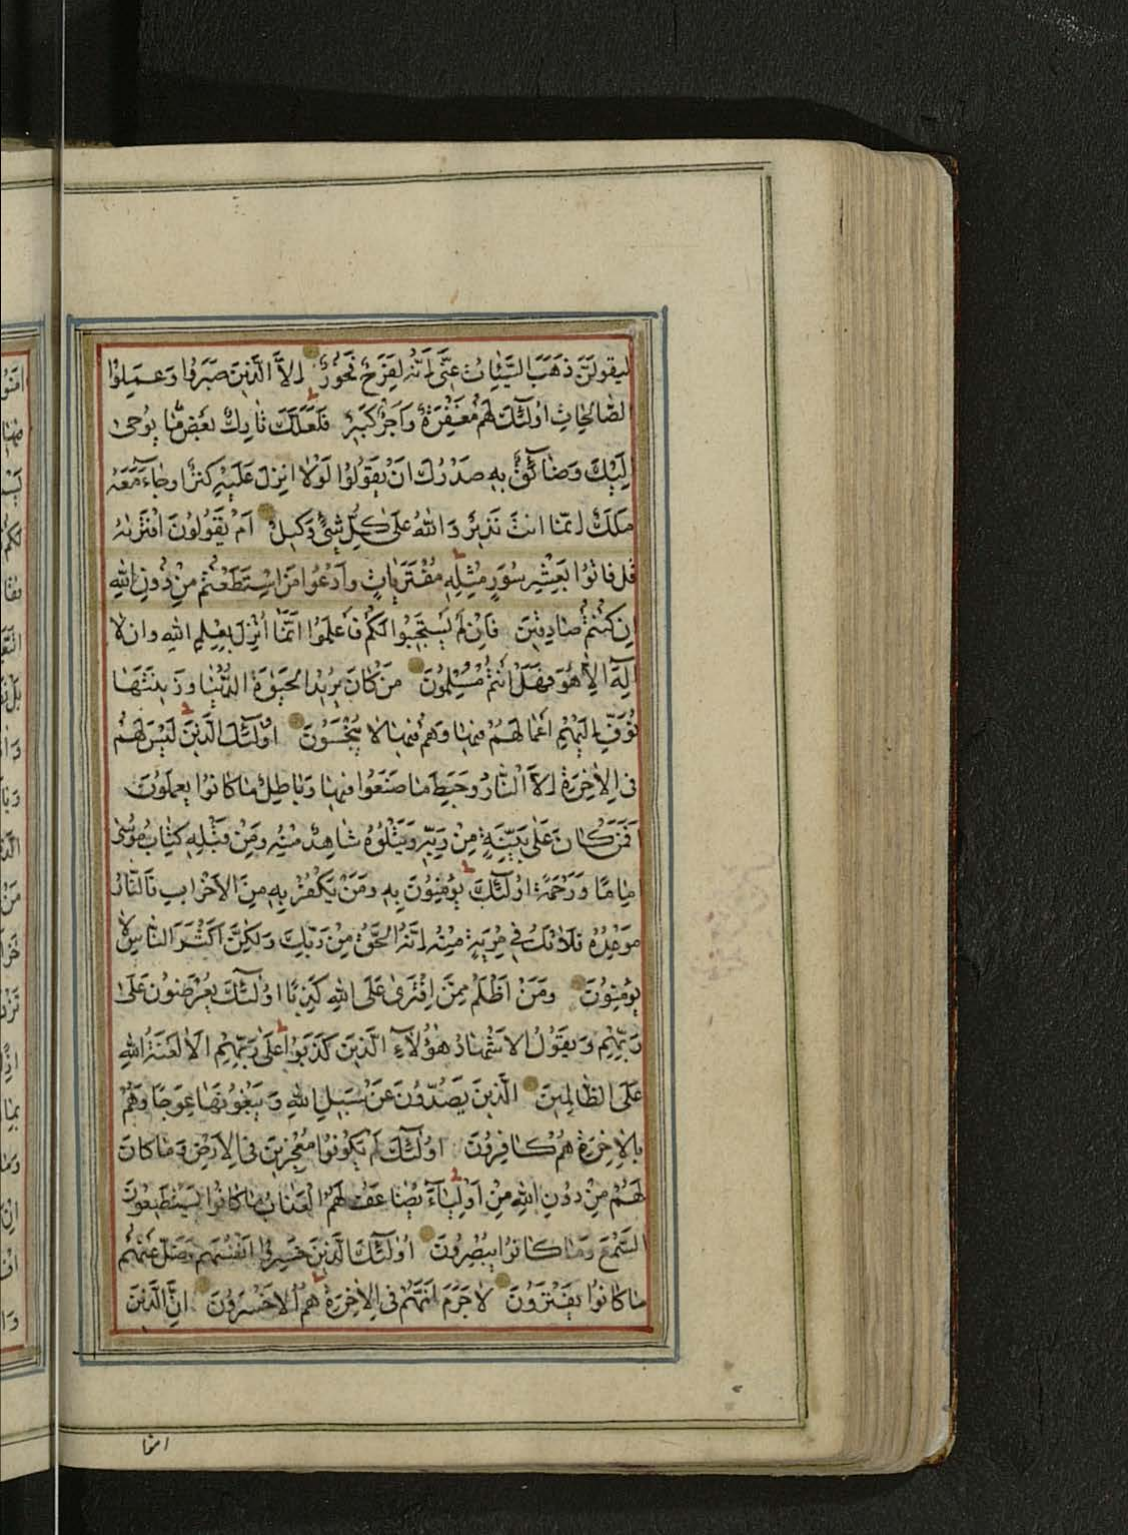 ليقولن ذهب السيئات عنى انه لفرح فخور الا الذين صبروا وعملوا
الصالحات اولئك لهم مغفرة واجر كبير فلعلك تارك بعض ما يوحى
اليك وضائق به صدرك ان يقولوا لولا انزل عليه كنز او جاء معه
ملك انما انت نذير والله على كل شئ وكيل ام يقولون افتريه
قل فاتوا بعشر سور مثله مفتريات وادعوا من استطعتم من دون الله
ان كنتم صادقين فان لم يستجيبوا لكم فاعلموا انما انزل بعلم الله وان لا
اله الا هو فهل انتم مسلمون من كان يريد الحيوة الدنيا وزينتها
نوف اليهم اعمالهم فيها وهم فيها لا يبخسون اولئك الذين ليس لهم
فى الاخرة الا النار وحبط ما صنعوا فيها وباطل ما كانوا يعملون
افمن كان على بينة من ربه ويتلوه شاهد منه ومن قبله كتاب موسى
اماما ورحمة اولئك يؤمنون به ومن يكفر به من الاحزاب فالنار
موعده فلا تك فى مرية منه انه الحق من ربك ولكن اكثر الناس لا
يؤمنون ومن اظلم ممن افترى على الله كذبا اولئك يعرضون على
ربهم ويقول الاشهاد هؤلاء الذين كذبوا على ربهم الا لعنة الله
على الظالمين الذين يصدون عن سبيل الله ويبغونها عوجا وهم
بالاخرة هم كافرون اولئك لم يكونوا معجزين فى الارض وما كان
لهم من دون الله من اولياء يضاعف لهم العذاب ما كانوا يستطيعون
السمع وما كانوا يبصرون اولئك الذين خسروا انفسهم وضل عنهم
ما كانوا يفترون لا جرم انهم فى الاخرة هم الاخسرون ان الذين
امنوا